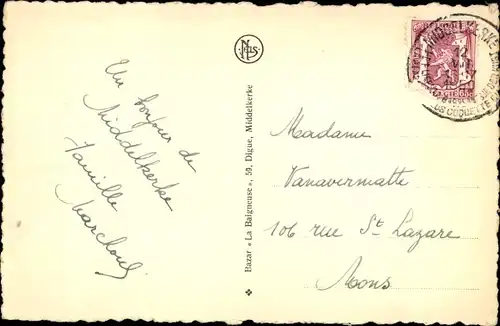 Un bonjour de
Middelkerke
Famille
Nels
Bazar « La Baigneuse », 59, Digue, Middelkerke
MIDDELKERKE
65c
Madame
Vanavermatte
106 rue St Lazare
Mons